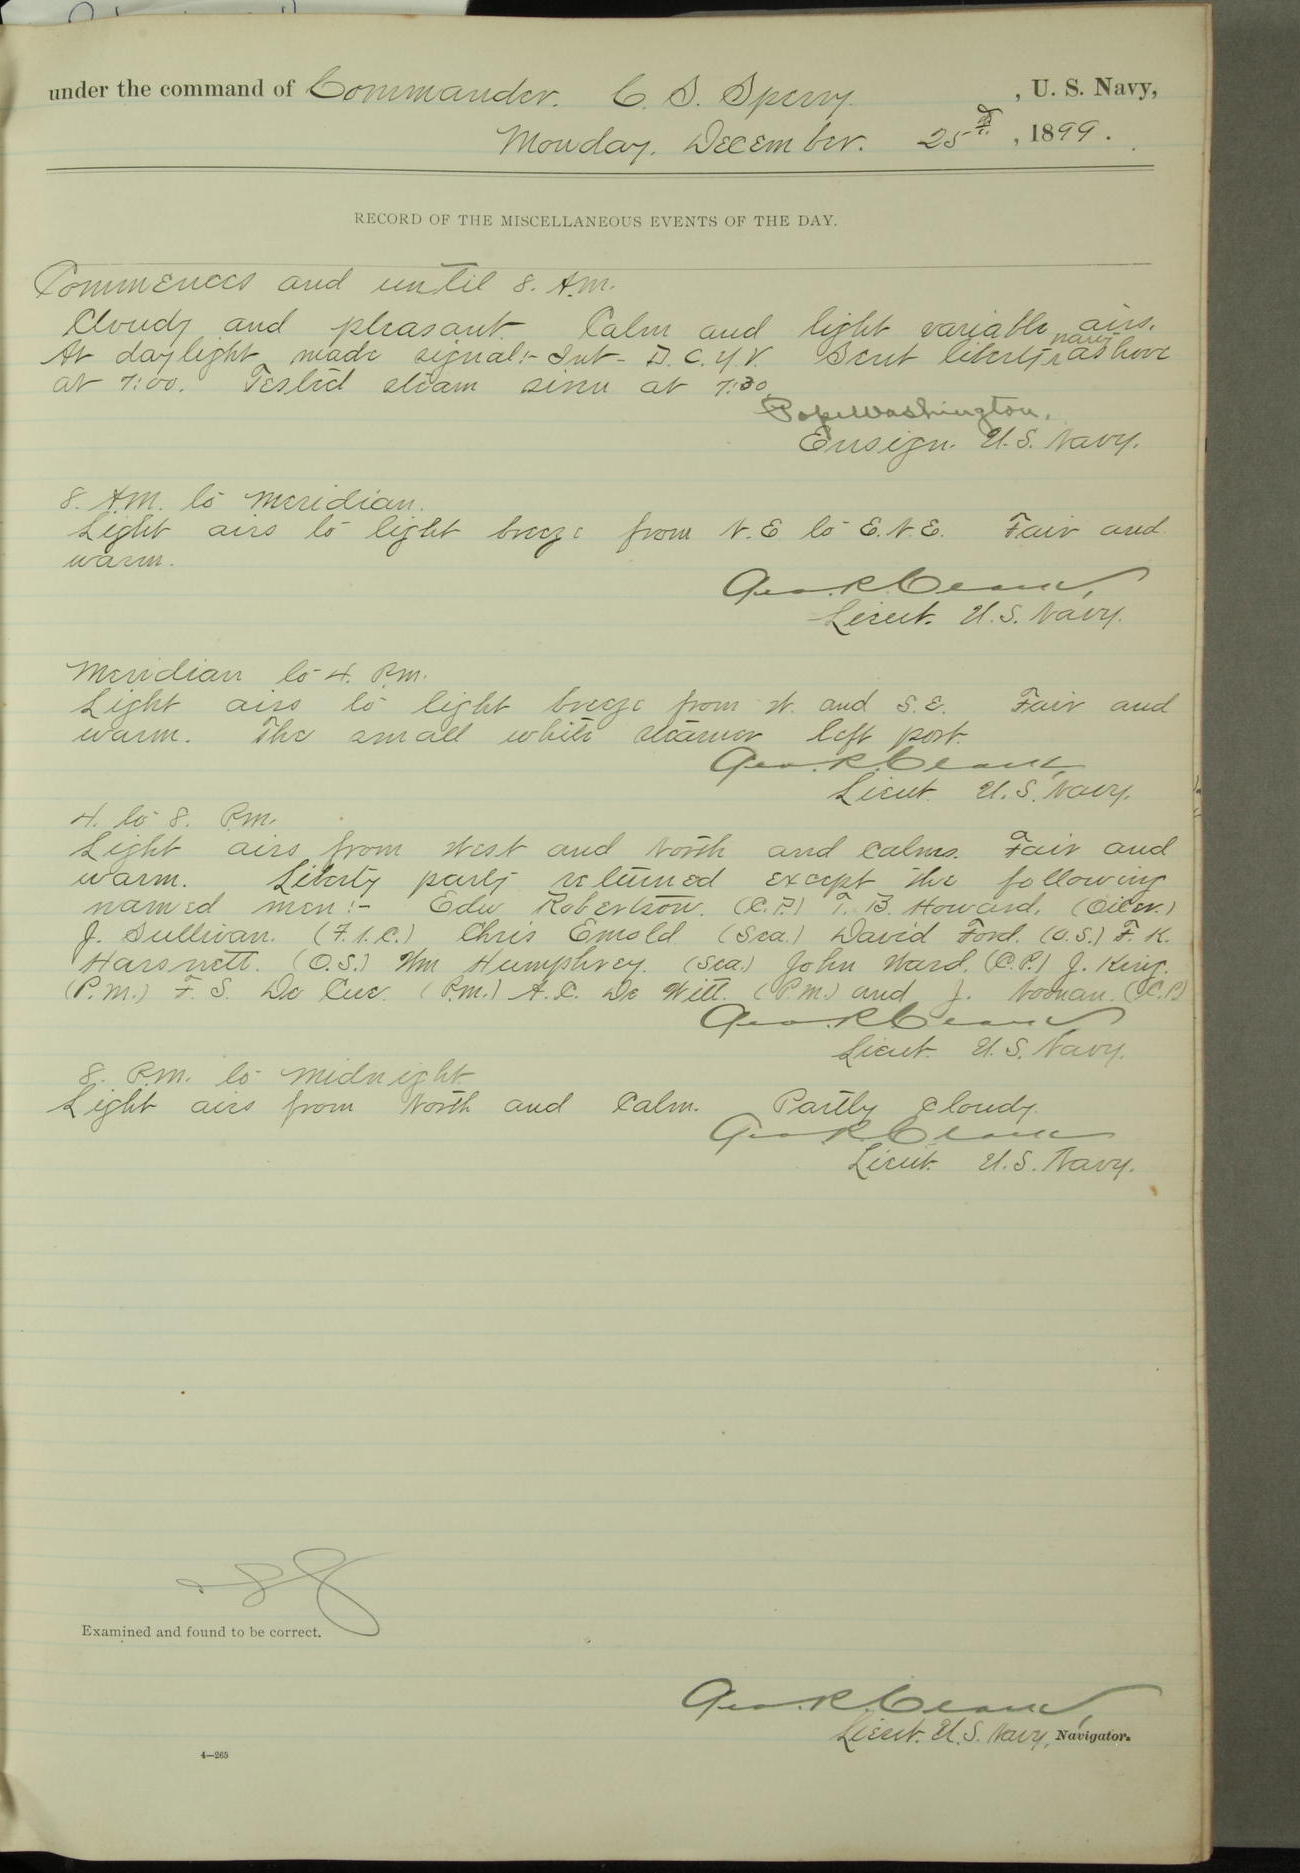 under the command of Commander. C. S. Sperry , U. S. Navy,
Monday. December. 25th , 1899.
RECORD OF THE MISCELLANEOUS EVENTS OF THE DAY.
Commences and until 8. A.M.
Cloudy and pleasant. Calm and light variable airs.
At daylight made signal:- Int - D. C. Y. V. Sent liberty party ashore
at 7:00. Tested steam siren at 7:30
Pope Washington.
Ensign. U. S. Navy.
8. A.M. to Meridian.
Light airs to light breeze from N.E to E.N.E. Fair and
warm.
Geo. R. Clark,
Lieut. U. S. Navy.
Meridian to 4. P.M.
Light airs to light breeze from W. and S.E. Fair and
warm. The small white steamer left port.
Geo. R. Clark,
Lieut. U. S. Navy.
4. to 8. P.M.
Light airs from West and North and calms. Fair and
warm. Liberty party returned except the following
named men:- Edw Robertson. (C.P.) T. B. Howard. (Oiler.)
J. Sullivan. (F.1.C.) Chris Emold (Sea.) David Ford. (O.S.) F. K.
Harsnett. (O.S.) Wm Humphrey. (Sea.) John Ward. (C.P.) J. King.
(P.M.) F. S. De Cue. (P.M.) A. C. De Witt. (P.M.) and J. Noonan. (C.P)
Geo. R. Clark
Lieut. U. S. Navy.
8. P.M. to midnight
Light airs from North and Calm. Partly cloudy.
Geo. R. Clark
Lieut. U. S. Navy.
Examined and found to be correct.
Geo. R. Clark,
Lieut. U. S. Navy, Navigator.
4—265